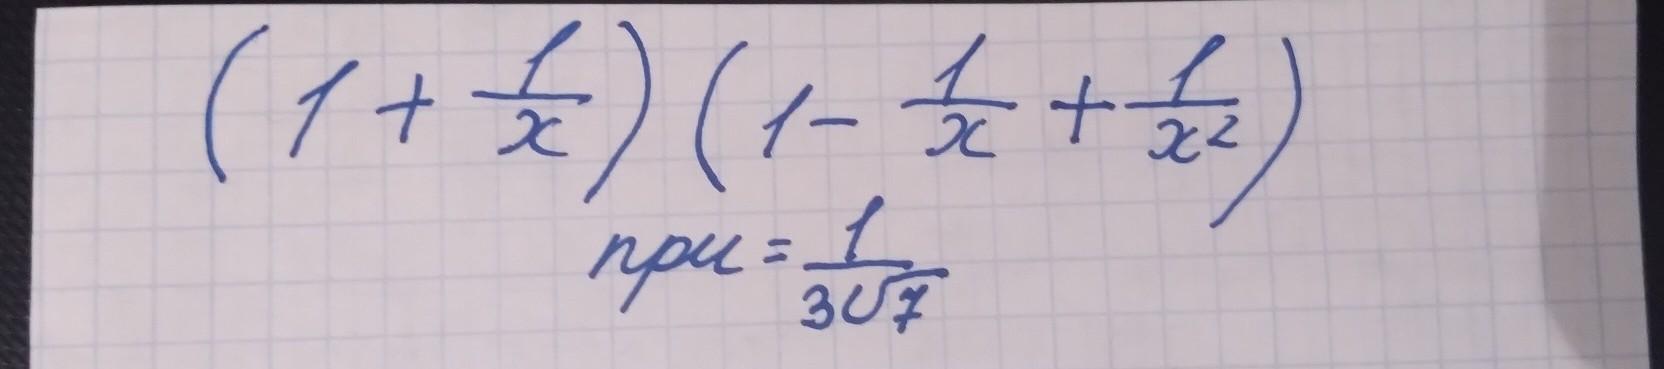 (1 + 1/x) (1 - 1/x + 1/x²)
при = 1/3√7